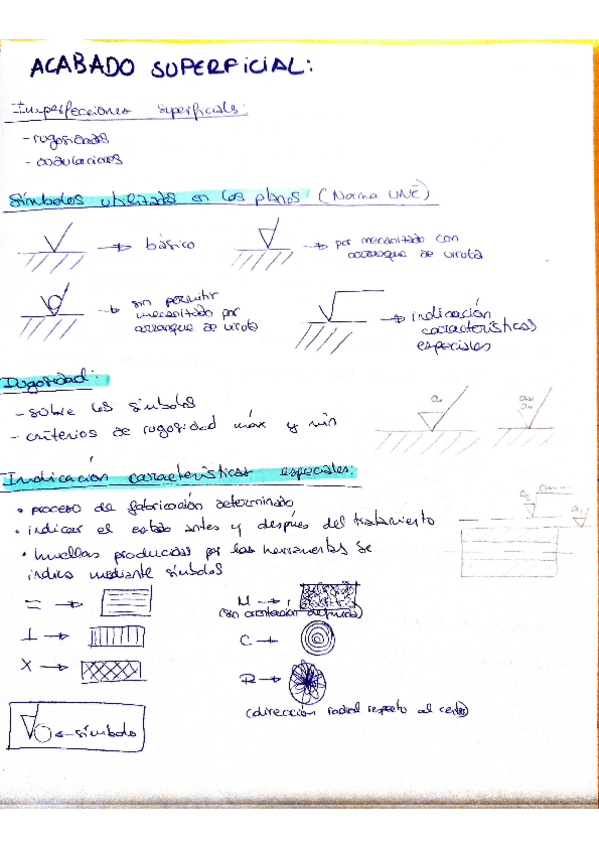 ACABADO SUPERFICIAL:
Imperfecciones superficials:
- rugosidades
- ondulaciones
Símbolos utilizats en los planos (Norma UNE)
básico
por mecanizado con
arranque de viruta
sin permitir
mecanizado por
arranque de viruta
indicación
características
especiales
Rugosidad:
- sobre los símbolos
- criterios de rugosidad máx y min
a1
Indicación características especiales:
• proceso de fabricación determinado
• indicar el estado antes y después del tratamiento
• huellas producidas por las herramientas se
indica mediante símbolos
a2
a1
=
M
(sin orientación definida)
⊥
C
X
R
(dirección radial respecto al centro)
símbolo